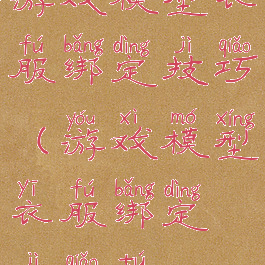 游戏模型衣
fú bǎng dìng jì qiǎo
服绑定技巧
yóu xì mó xíng
(游戏模型
yī fú bǎng dìng
衣服绑定
jì qiǎo tú